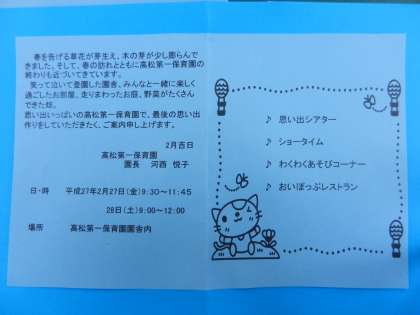 春を告げる草花が芽生え、木の芽が少し膨らんで
きました。そして、春の訪れとともに高松第一保育園の
終わりも近づいてきています。
笑って泣いて登園した園舎、みんなと一緒に楽しく
過ごしたお部屋、走りまわったお庭、野菜がたくさん
できた畑。
思い出いっぱいの高松第一保育園で、最後の思い出
作りをしていただきたく、ご案内申し上げます。
2月吉日
高松第一保育園
園長 河西 悦子
日・時 平成27年2月27日(金)9:30~11:45
28日(土)9:00~12:00
場所 高松第一保育園園舎内
♪ 思い出シアター
♪ ショータイム
♪ わくわくあそびコーナー
♪ おいぽっぷレストラン